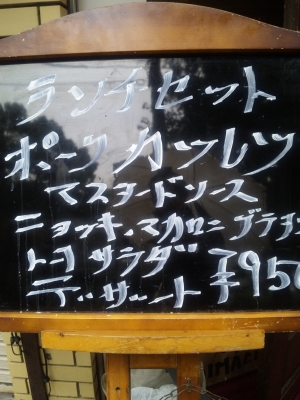 ランチセット
ポークカツレツ
マスタードソース
ニョッキ・マカロニグラタン
トコサラダ
デザート ¥950